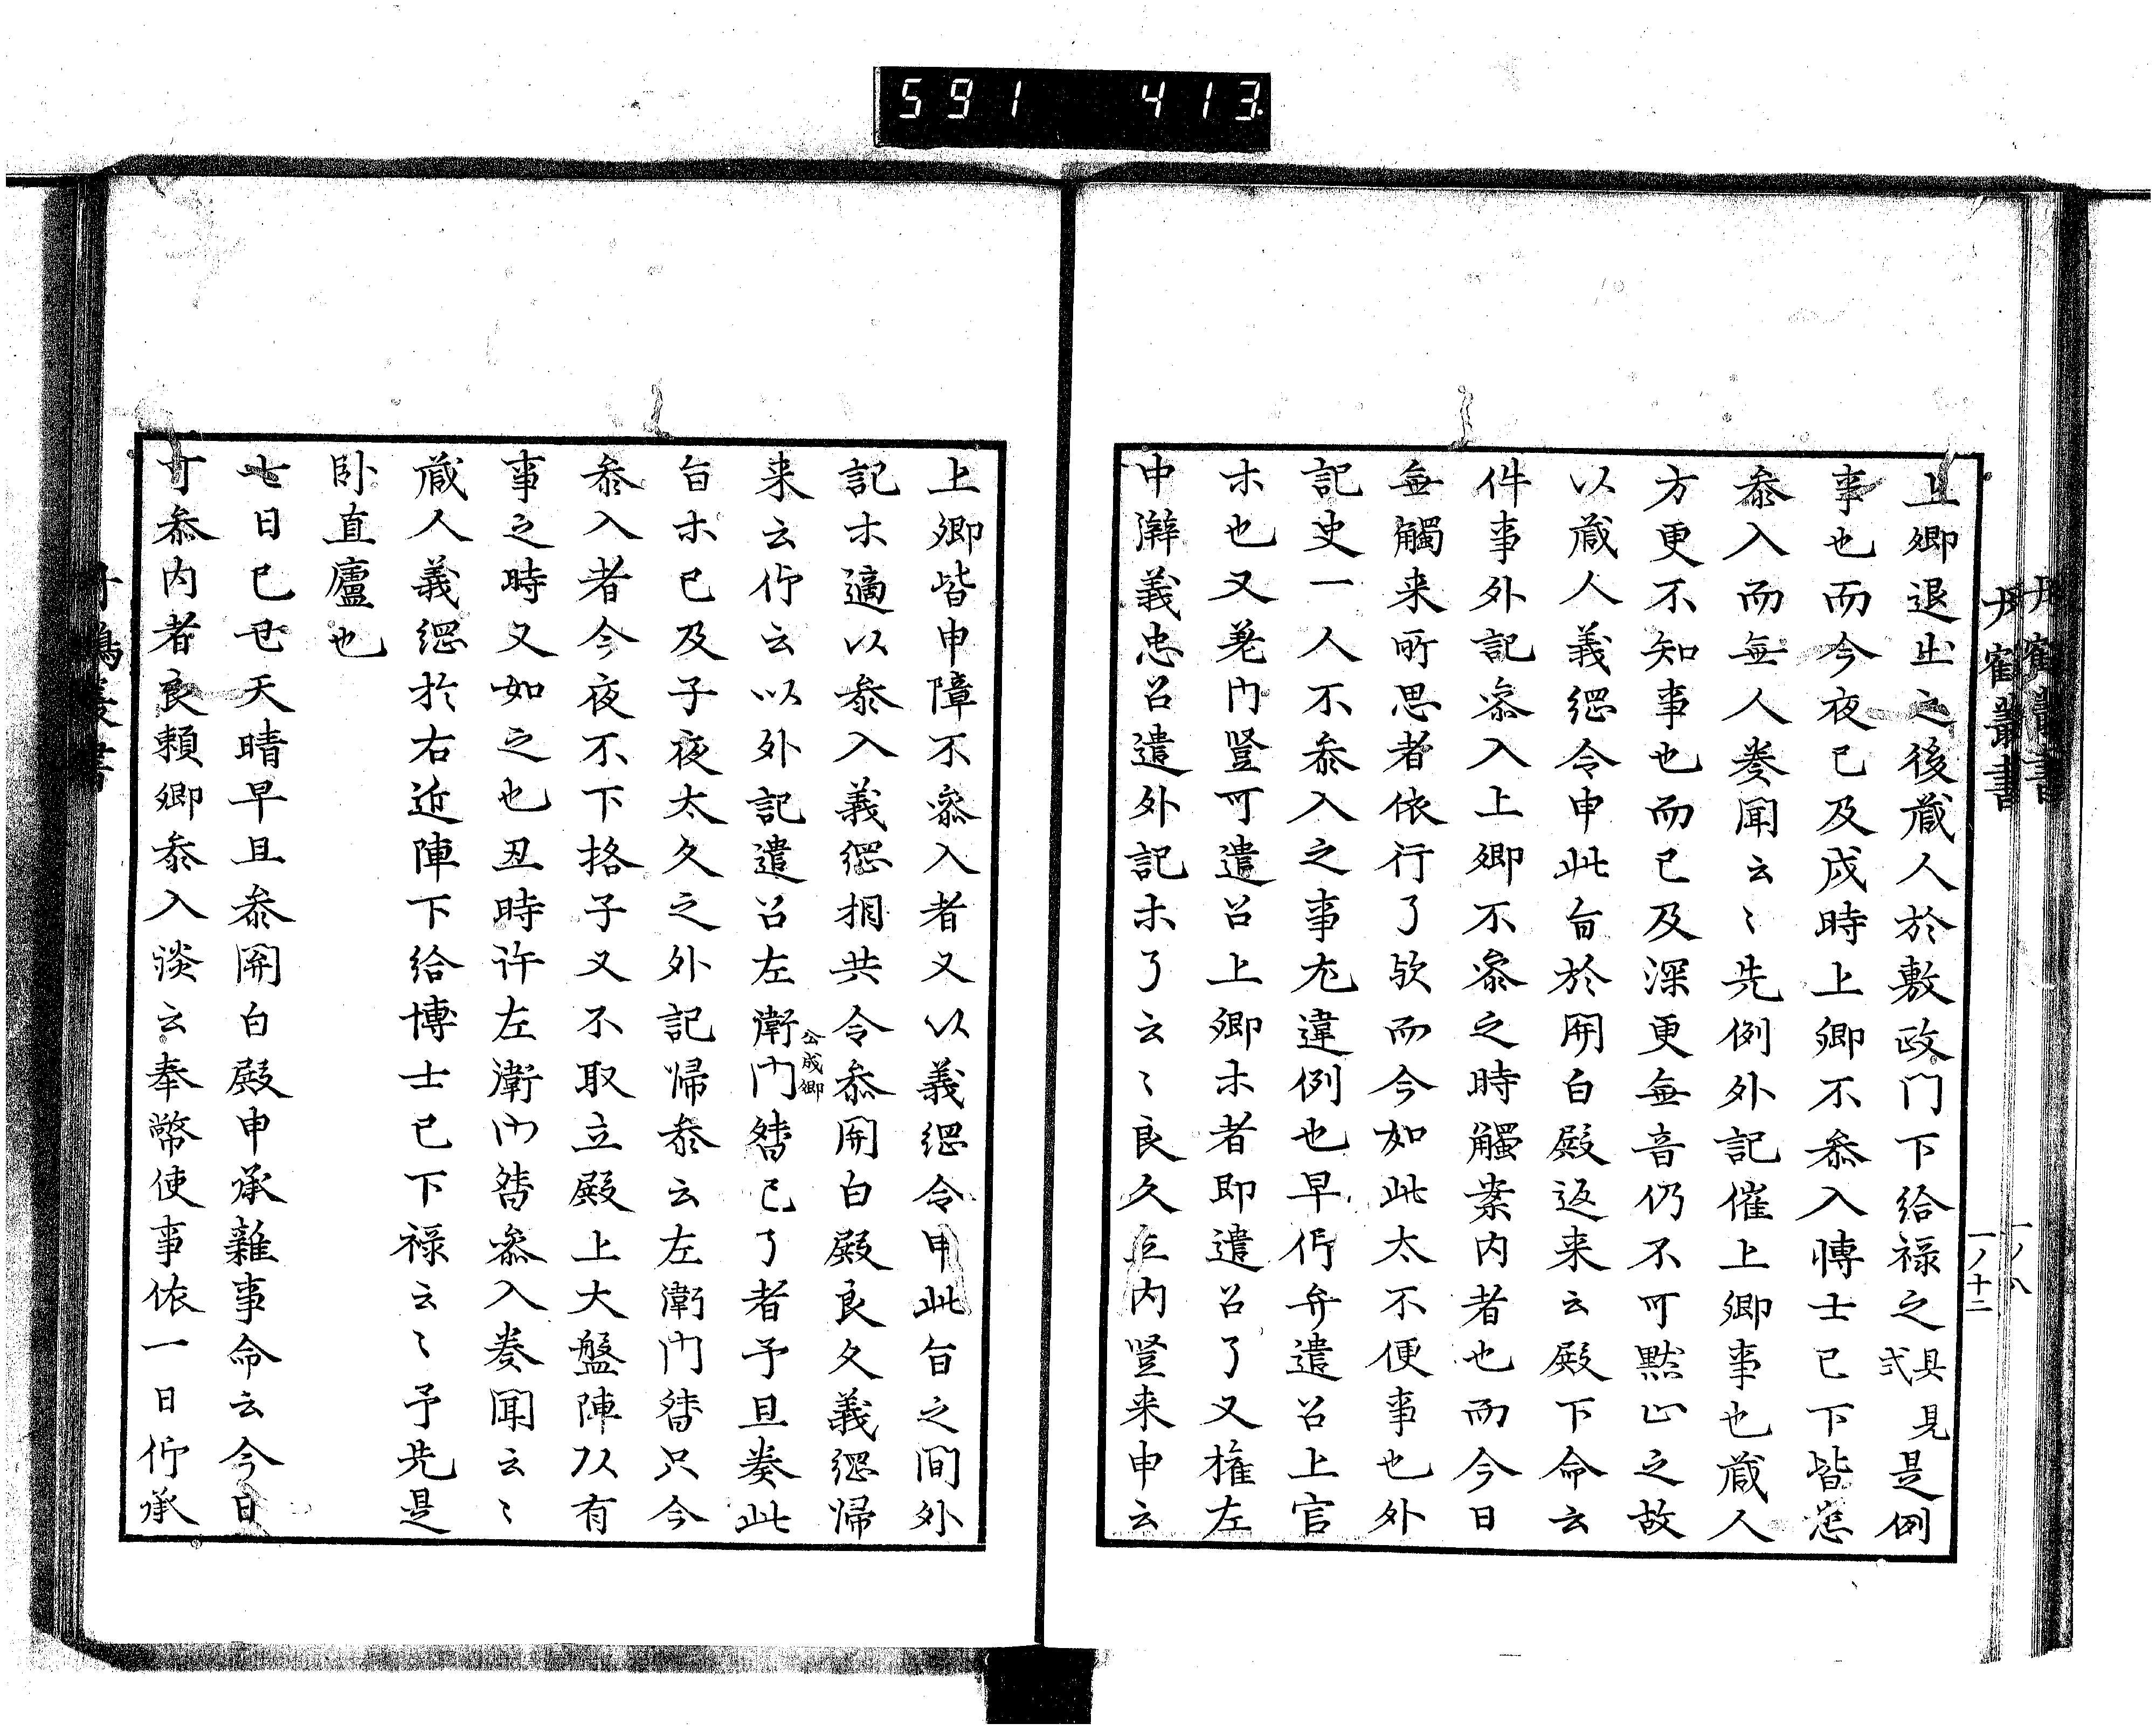 591 413
丹鶴叢書
一ノ八
丹鶴叢書
一ノ十二
上卿退出之後蔵人於敷政门下給禄之具見弐是例
事也而今夜已及戌時上卿不参入博士已下皆怠
参入而無人奏聞云〻先例外記催上卿事也蔵人
方更不知事也而已及深更無音仍不可黙止之故
以蔵人義綱令申此旨於関白殿返来云殿下命云
件事外記参入上卿不参之時觸案内者也而今日
無觸来所思者依行了欤而今如此太不便事也外
記史一人不参入之事尤違例也早仰弁遣召上官
ホ也又差内竪可遣召上卿ホ者即遣召了又権左
中辨義忠召遣外記ホ了云〻良久立内竪来申云
上卿皆申障不参入者又以義綱令申此旨之间外
記ホ適以参入義綱相共令参関白殿良久義綱帰
来云仰云以外記遣召左衛门督公成卿已了者予且奏此
旨ホ已及子夜太久之外記帰参云左衛门督只今
参入者今夜不下格子又不取立殿上大盤陣以有
事之時又如之也丑時许左衛门督参入奏聞云〻
蔵人義綱於右近陣下給博士已下禄云〻予先是
卧直廬也
七日己巳天晴早旦参関白殿申承雑事命云今日
可参内者良頼卿参入談云奉幣使事依一日仰承
丹鶴叢書